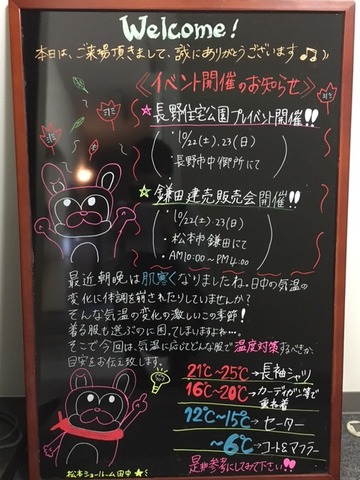 Welcome!
本日は、ご来場頂きまして、誠にありがとうございます♪♫
≪イベント開催のお知らせ≫
☆長野住宅公園プレイベント開催!!
・10/22(土).23(日)
・長野市中御所にて
☆鎌田建売販売会開催!!
・10/22(土).23(日)
・松本市鎌田にて
・AM10:00～PM4:00
最近朝晩は肌寒くなりましたね。日中の気温の
変化に体調を崩されたりしていませんか?
そんな気温の変化の激しいこの季節!
着る服も選ぶのに困ってしまいますよね…。
そこで今回は、気温に応じどんな服で温度対策するべきか、
目安をお伝え致します。
21℃～25℃→長袖シャツ
16℃～20℃→カーディガン等で
重ね着
12℃～15℃→セーター
～6℃→コート&マフラー
是非参考にしてみて下さい!!
松本ショールーム田中★